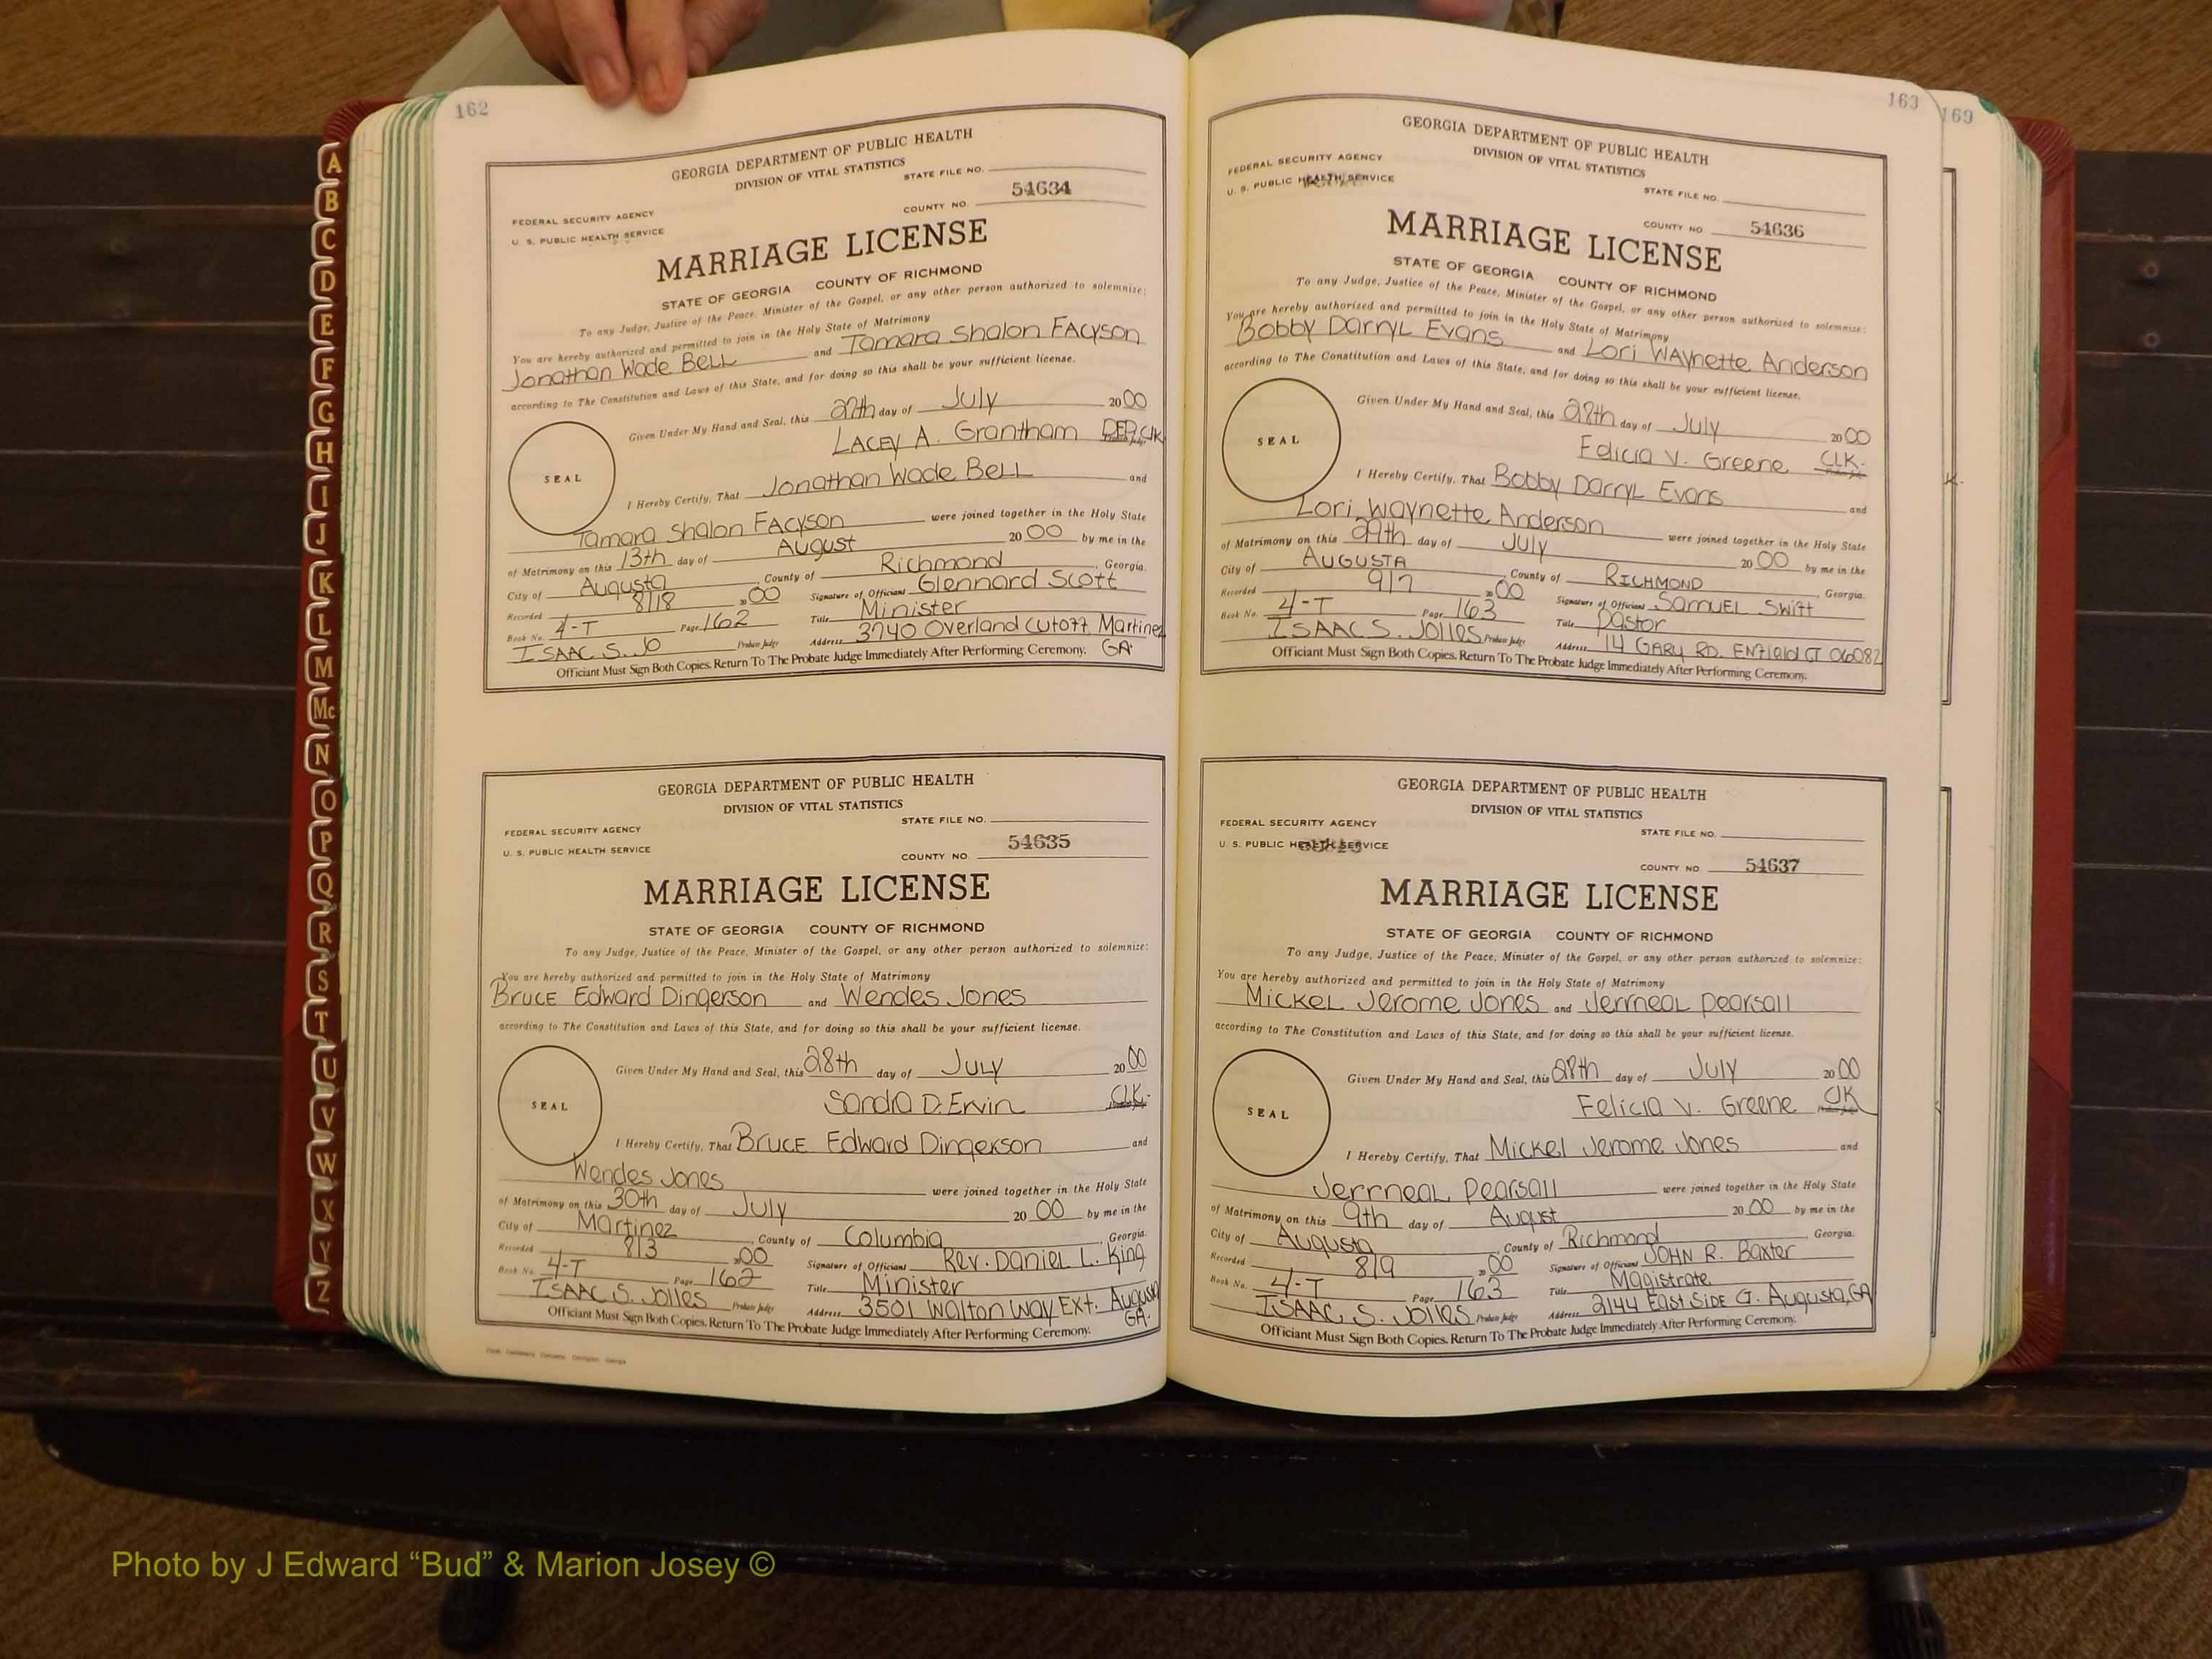 162
GEORGIA DEPARTMENT OF PUBLIC HEALTH
DIVISION OF VITAL STATISTICS
STATE FILE NO.
FEDERAL SECURITY AGENCY
U. S. PUBLIC HEALTH SERVICE
COUNTY NO. 54634
MARRIAGE LICENSE
STATE OF GEORGIA COUNTY OF RICHMOND
To any Judge, Justice of the Peace, Minister of the Gospel, or any other person authorized to solemnize:
You are hereby authorized and permitted to join in the Holy State of Matrimony
Jonathan Wade Bell and Tamara Shalon Facyson
according to The Constitution and Laws of this State, and for doing so this shall be your sufficient license.
Given Under My Hand and Seal, this day of July 2000
Lacey A. Grantham Dep. Clk
SEAL
I Hereby Certify, That Jonathan Wade Bell and
Tamara Shalon Facyson were joined together in the Holy State
of Matrimony on this 13th day of August 20 00 by me in the
City of Augusta, County of Richmond, Georgia.
Recorded 8/18 20 00 Signature of Officiant Glennard Scott
Book No. 4-T Page 162 Title Minister
Isaac S. Jo Probate Judge Address 3740 Overland Cutoff Martinez GA.
Officiant Must Sign Both Copies. Return To The Probate Judge Immediately After Performing Ceremony.
GEORGIA DEPARTMENT OF PUBLIC HEALTH
DIVISION OF VITAL STATISTICS
STATE FILE NO.
FEDERAL SECURITY AGENCY
U. S. PUBLIC HEALTH SERVICE
COUNTY NO. 54635
MARRIAGE LICENSE
STATE OF GEORGIA COUNTY OF RICHMOND
To any Judge, Justice of the Peace, Minister of the Gospel, or any other person authorized to solemnize:
You are hereby authorized and permitted to join in the Holy State of Matrimony
Bruce Edward Dingerson and Wendes Jones
according to The Constitution and Laws of this State, and for doing so this shall be your sufficient license.
Given Under My Hand and Seal, this 28th day of July 20 00
Sandra D. Ervin Clk.
SEAL
I Hereby Certify, That Bruce Edward Dingerson and
Wendes Jones were joined together in the Holy State
of Matrimony on this 30th day of July 20 00 by me in the
City of Martinez, County of Columbia, Georgia.
Recorded 8/3 20 00 Signature of Officiant Rev. Daniel L. King
Book No. 4-T Page 162 Title Minister
Isaac S. Jolles Probate Judge Address 3501 Walton Way Ext. Augusta GA.
Officiant Must Sign Both Copies. Return To The Probate Judge Immediately After Performing Ceremony.
163
169
GEORGIA DEPARTMENT OF PUBLIC HEALTH
DIVISION OF VITAL STATISTICS
FEDERAL SECURITY AGENCY
U. S. PUBLIC HEALTH SERVICE
STATE FILE NO.
COUNTY NO 54636
MARRIAGE LICENSE
STATE OF GEORGIA COUNTY OF RICHMOND
To any Judge, Justice of the Peace, Minister of the Gospel, or any other person authorized to solemnize:
You are hereby authorized and permitted to join in the Holy State of Matrimony
Bobby Darryl Evans and Lori Waynette Anderson
according to The Constitution and Laws of this State, and for doing so this shall be your sufficient license.
Given Under My Hand and Seal, this 28th day of July 20 00
Felicia V. Greene Clk.
SEAL
I Hereby Certify, That Bobby Darryl Evans and
Lori Waynette Anderson were joined together in the Holy State
of Matrimony on this 29th day of July 20 00 by me in the
City of Augusta, County of Richmond, Georgia.
Recorded 9/7 20 00 Signature of Officiant Samuel Swift
Book No. 4-T Page 163 Title Pastor
Isaac S. Jolles Probate Judge Address 14 Gary Rd. Enfield CT 06082
Officiant Must Sign Both Copies. Return To The Probate Judge Immediately After Performing Ceremony.
GEORGIA DEPARTMENT OF PUBLIC HEALTH
DIVISION OF VITAL STATISTICS
FEDERAL SECURITY AGENCY
STATE FILE NO.
U. S. PUBLIC HEALTH SERVICE
COUNTY NO 54637
MARRIAGE LICENSE
STATE OF GEORGIA COUNTY OF RICHMOND
To any Judge, Justice of the Peace, Minister of the Gospel, or any other person authorized to solemnize:
You are hereby authorized and permitted to join in the Holy State of Matrimony
Mickel Jerome Jones and Jerrneal Pearsall
according to The Constitution and Laws of this State, and for doing so this shall be your sufficient license.
Given Under My Hand and Seal, this 28th day of July 20 00
Felicia V. Greene Clk
SEAL
I Hereby Certify, That Mickel Jerome Jones and
Jerrneal Pearsall were joined together in the Holy State
of Matrimony on this 9th day of August 20 00 by me in the
City of Augusta, County of Richmond, Georgia.
Recorded 8/9 20 00 Signature of Officiant John R. Baxter
Book No. 4-T Page 163 Title Magistrate
Isaac S. Jolles Probate Judge Address 2144 East Side G. Augusta, GA
Officiant Must Sign Both Copies. Return To The Probate Judge Immediately After Performing Ceremony.
A
B
C
D
E
F
G
H
I
J
K
L
M
Mc
N
O
P
Q
R
S
T
U
V
W
X
Y
Z
Photo by J Edward “Bud” & Marion Josey ©